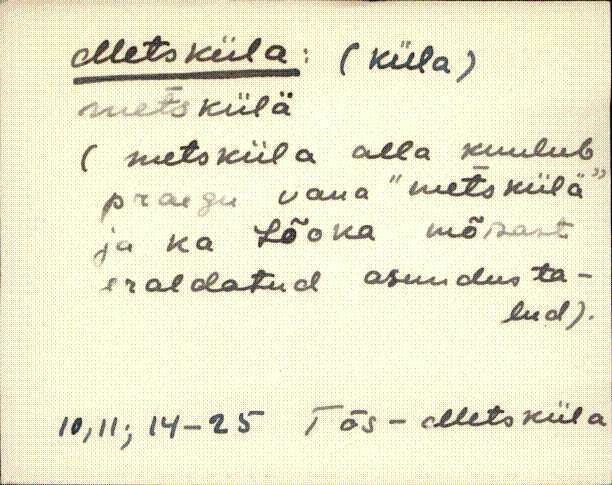 Metsküla: (küla)
metskülä
( metsküla alla kuulub
praegu vana "metskülä"
ja ka Lõoka mõisast
eraldatud asundusta-
lud).
10,11; 14-25 Tõs - Metsküla